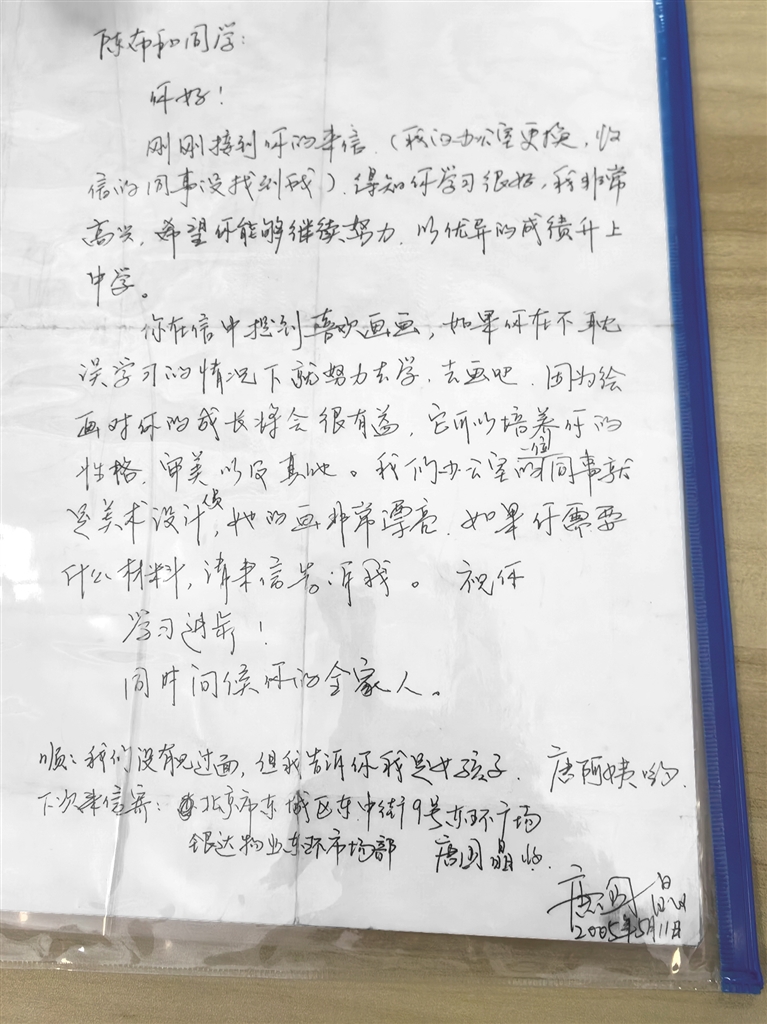 陈布和同学：
你好！
刚刚接到你的来信，（我们办公室更换，收
信的同事没找到我）．得知你学习很好，我非常
高兴，希望你能够继续努力．以优异的成绩升上
中学。
你在信中提到喜欢画画，如果你在不耽
误学习的情况下就努力去学，去画吧．因为绘
画对你的成长将会很有益，它可以培养你的
性格，审美以及其他。我们办公室的一位同事就
是美术设计员，她的画非常漂亮．如果你需要
什么材料，请来信告诉我。 祝你
学习进步！
同时问候你的全家人。
顺：我们没有见过面，但我告诉你我是女孩子． 唐阿姨哟．
下次来信寄：北京市东城区东中街9号东环广场
银达物业东环市场部 唐国晶收．
唐国晶
2005年5月11日